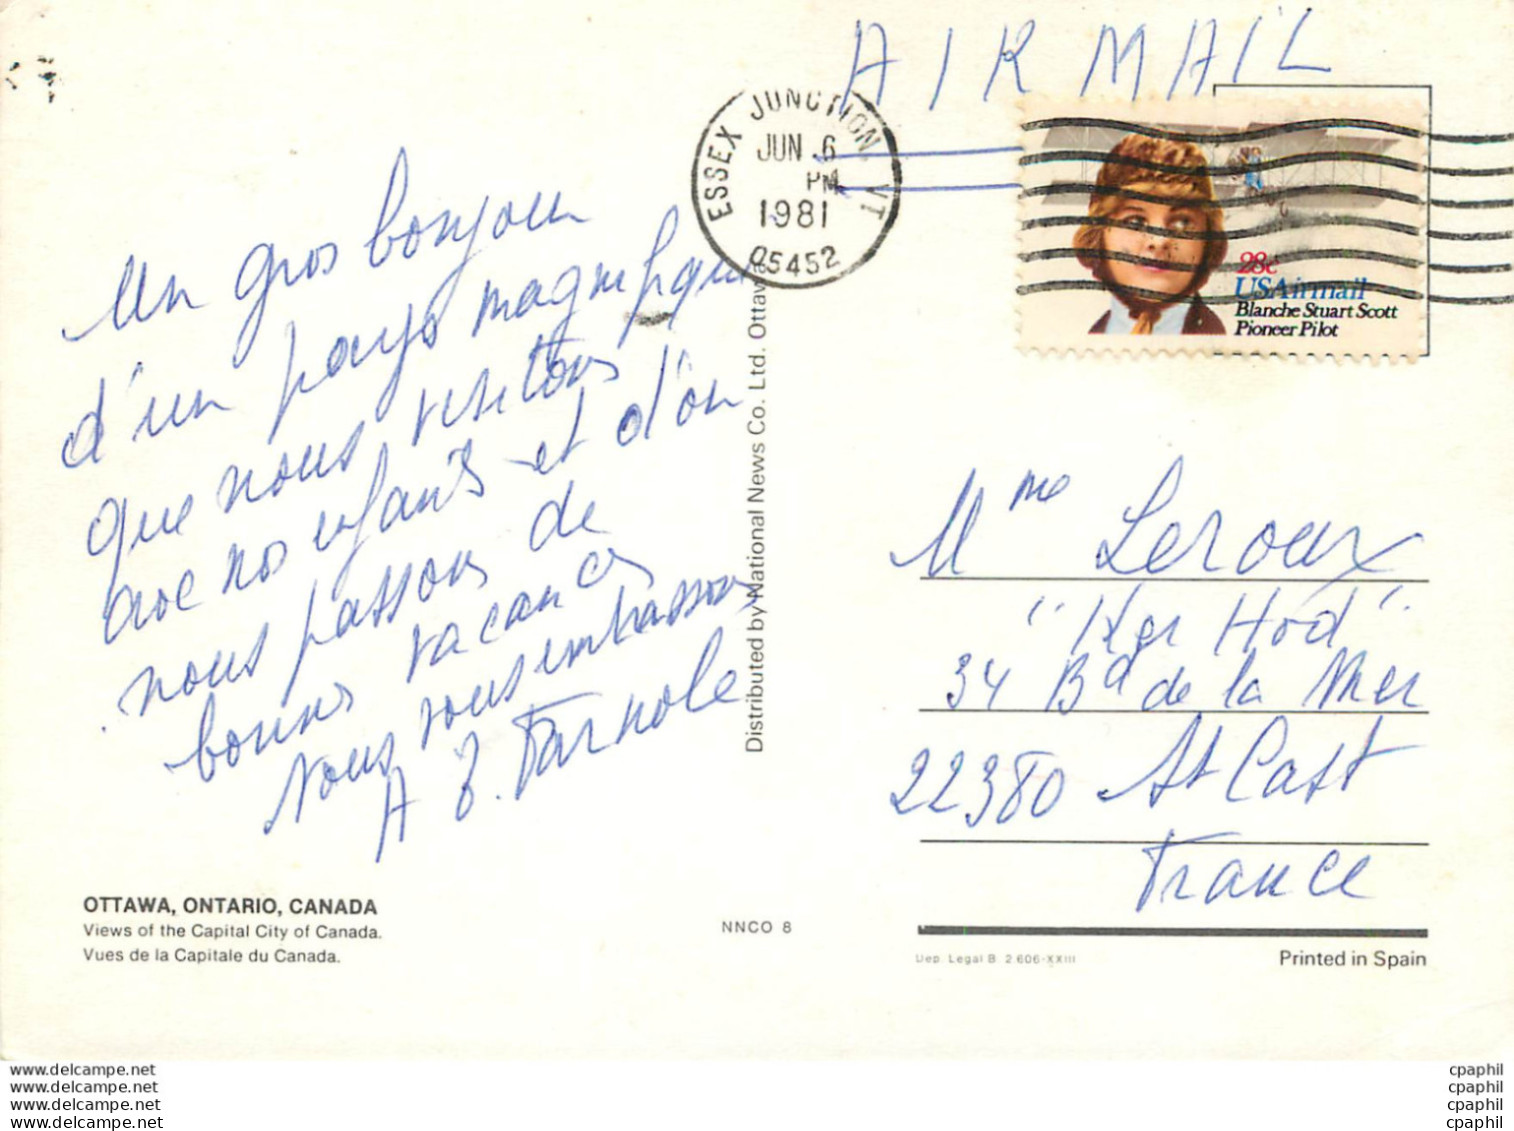 AIR MAIL
ESSEX JUNCTION, VT
JUN 6
PM
1981
05452
28c
USAirmail
Blanche Stuart Scott
Pioneer Pilot
Un gros bonjour
d'un pays magnifique
que nous visitons
avec nos enfants et d'on
nous passons de
bonnes vacances
Nous vous embrassons
A
Distributed by National News Co. Ltd. Ottawa
Mme Leroux
"Ker Hod"
34 Bd de la Mer
22380 St Cast
France
OTTAWA, ONTARIO, CANADA
Views of the Capital City of Canada.
Vues de la Capitale du Canada.
NNCO 8
Dep. Legal B 2.606-XXIII
Printed in Spain
www.delcampe.net
www.delcampe.net
www.delcampe.net
www.delcampe.net
cpaphil
cpaphil
cpaphil
cpaphil